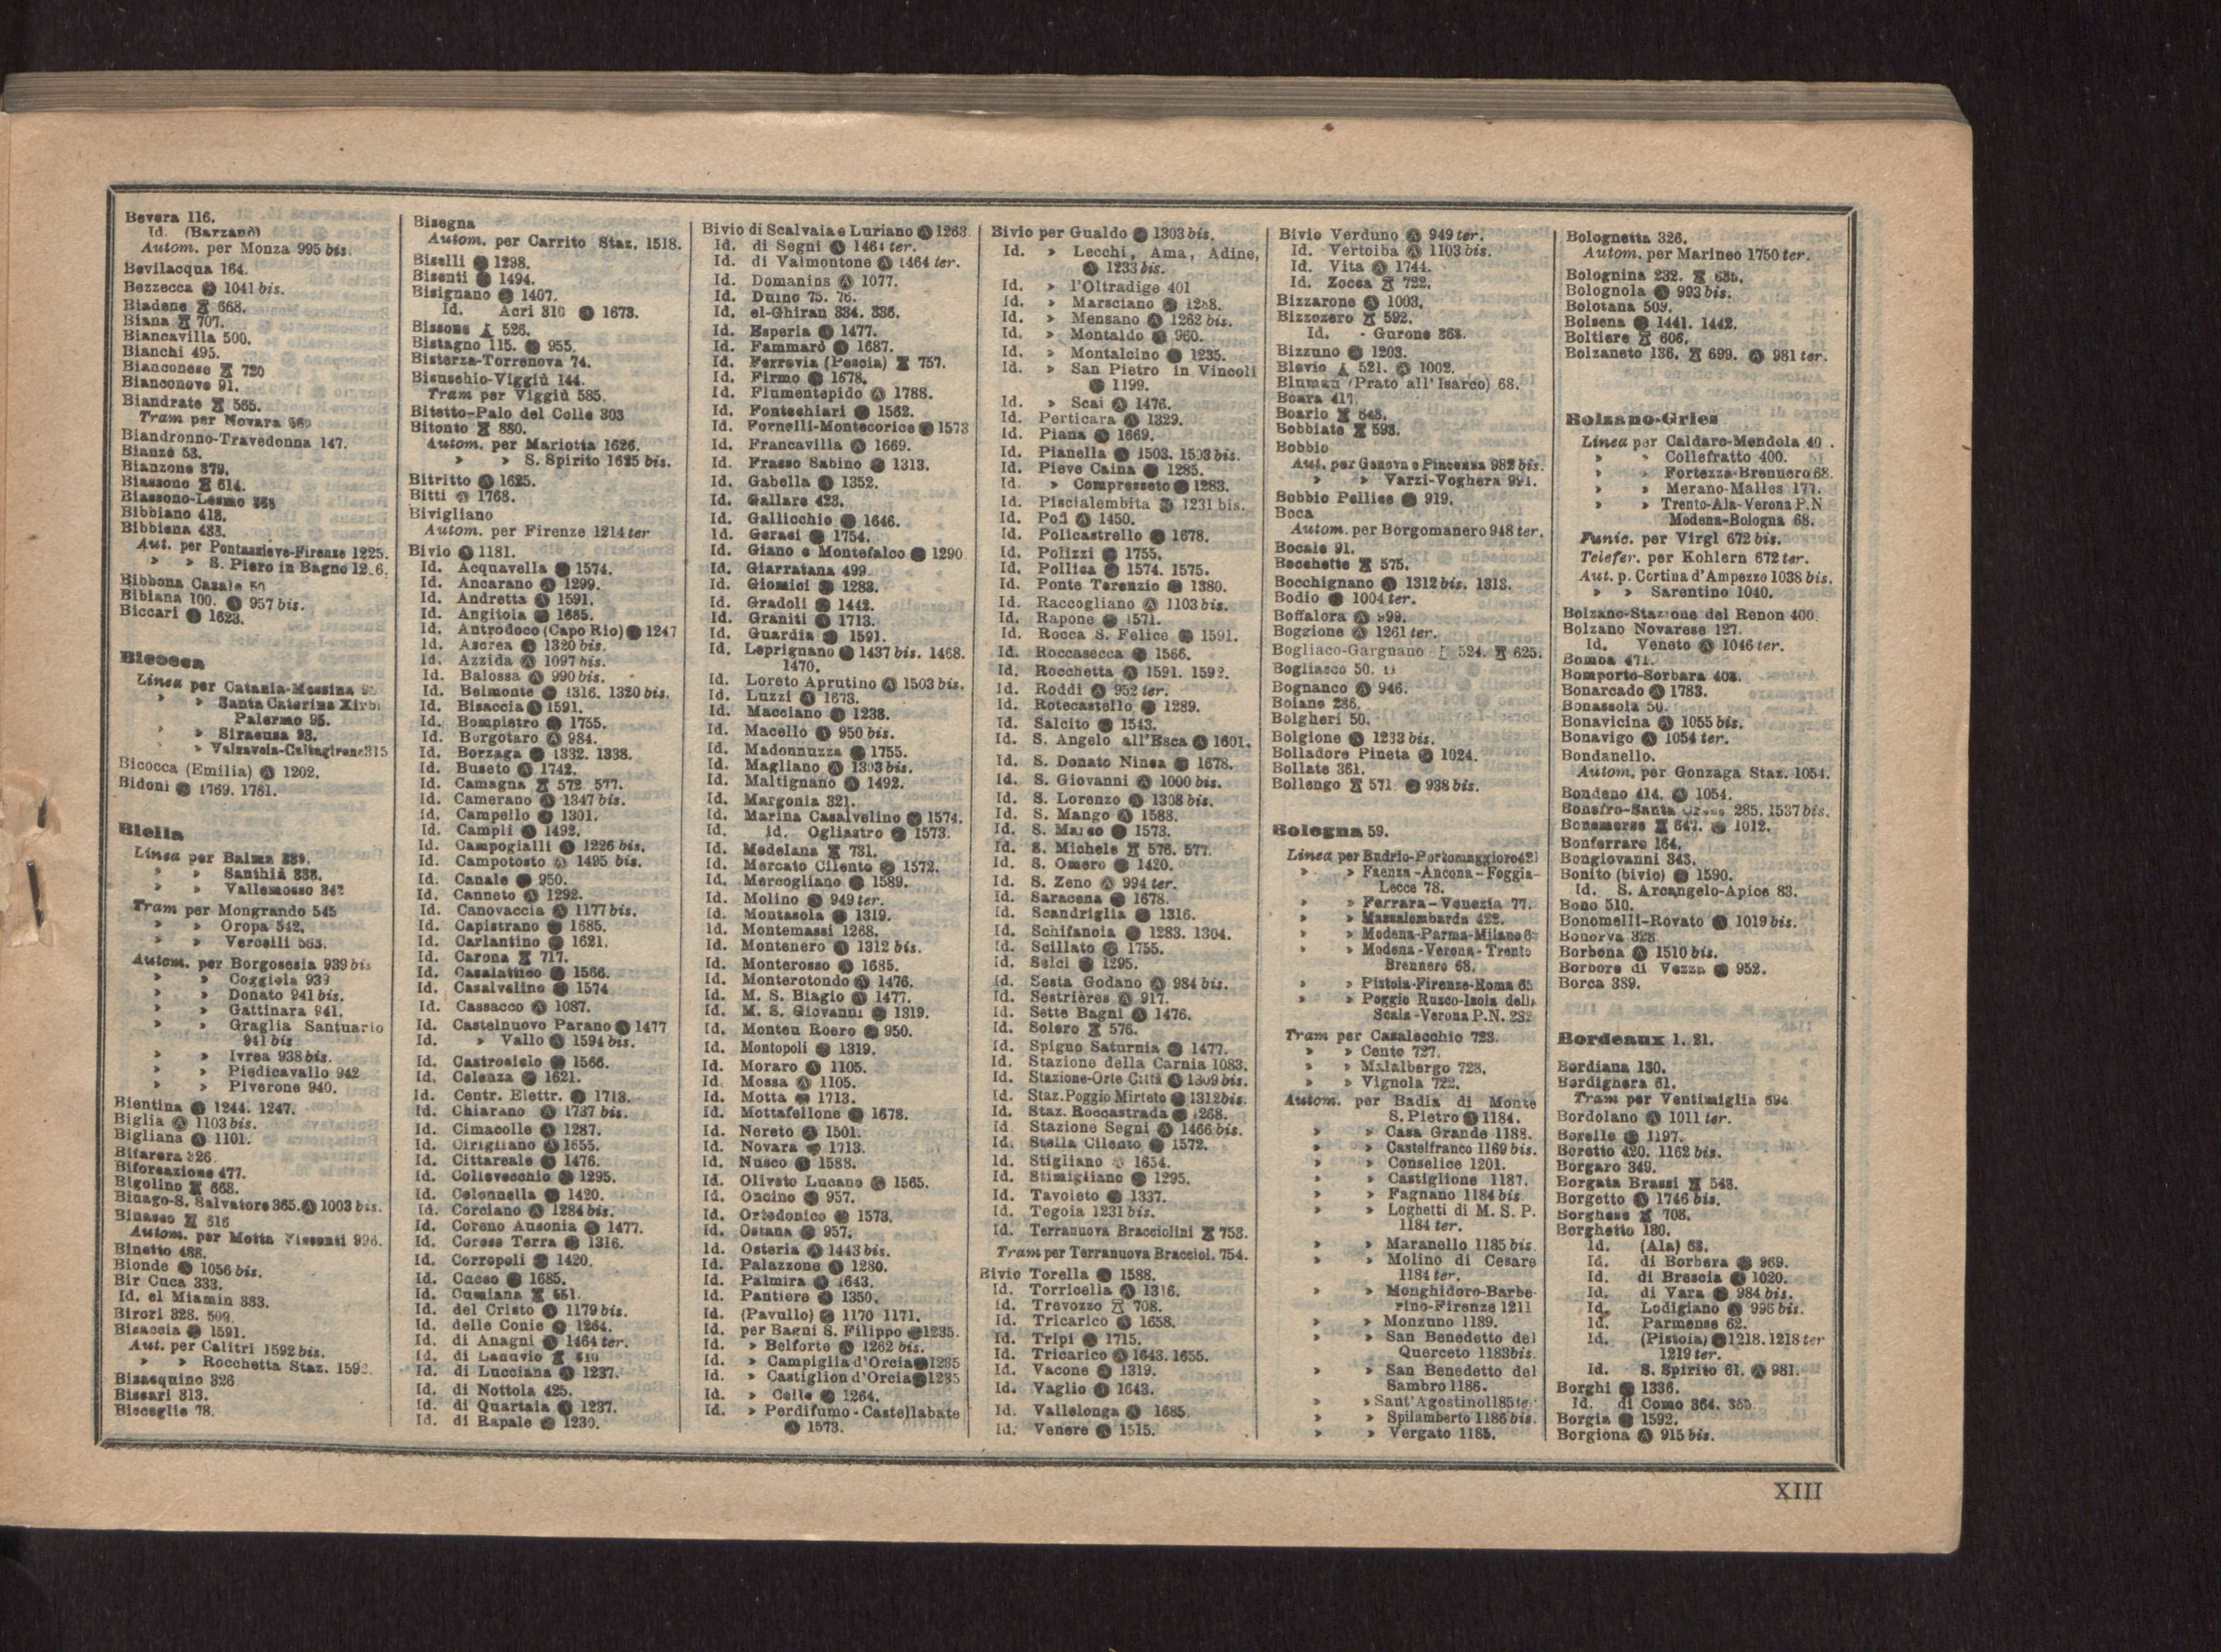 Bevera 116.
Id. (Barzanò)
Autom. per Monza 995 bis.
Bevilacqua 164.
Bezzecca Ⓐ 1041 bis.
Biadene 668.
Biana 707.
Biancavilla 500.
Bianchi 495.
Bianconese 720
Bianconovo 91.
Biandrate 565.
Tram per Novara
Biandronno-Travedonna 147.
Bianzè 53.
Bianzone 379.
Biassono 614.
Biassono-Lesmo
Bibbiano 418.
Bibbiena 433.
Aut. per Pontassieve-Firenze 1225.
» » S. Piero in Bagno
Bibbona Casale 50
Bibiana 100. Ⓐ 957 bis.
Biccari Ⓐ 1623.
Bicocca
Linea per Catania-Messina
» » Santa Caterina Xirbi
Palermo 95.
» » Siracusa 93.
» Valsavoia-Caltagirone 315
Bicocca (Emilia) Ⓐ 1202.
Bidoni Ⓐ 1769. 1781.
Biella
Linea per Balma 339.
» » Santhià 338.
» » Vallemosso 342
Tram per Mongrando 545
» » Oropa 542.
» » Vercelli 563.
Autom. per Borgosesia 939 bis
» » Coggiola 939
» » Donato 941 bis.
» » Gattinara 941.
» » Graglia Santuario
941 bis
» » Ivrea 938 bis.
» » Piedicavallo 942
» » Piverone 940.
Bientina Ⓐ 1244. 1247.
Biglia Ⓐ 1103 bis.
Bigliana Ⓐ 1101.
Bifarera 326
Biforcazione 477.
Bigolino 668.
Binago-S. Salvatore 365. Ⓐ 1003 bis.
Binasco 616
Autom. per Motta Visconti 996.
Binetto 488.
Bionde Ⓐ 1056 bis.
Bir Cuca 333.
Id. el Miamin 333.
Birori 328. 509.
Bisaccia Ⓐ 1591.
Aut. per Calitri 1592 bis.
» » Rocchetta Staz. 1592.
Bisacquino 326
Biscari 313.
Bisceglie 78.
Bisegna
Autom. per Carrito Staz. 1518.
Biselli Ⓐ 1298.
Bisenti Ⓐ 1494.
Bisignano Ⓐ 1407.
Id. Acri 310 Ⓐ 1673.
Bissone 526.
Bistagno 115. Ⓐ 955.
Bisterza-Torrenova 74.
Bisuschio-Viggiù 144.
Tram per Viggiù 585.
Bitetto-Palo del Colle 303
Bitonto 880.
Autom. per Mariotta 1626.
» » S. Spirito 1625 bis.
Bitritto Ⓐ 1625.
Bitti Ⓐ 1768.
Bivigliano
Autom. per Firenze 1214 ter
Bivio Ⓐ 1181.
Id. Acquavella Ⓐ 1574.
Id. Ancarano Ⓐ 1299.
Id. Andretta Ⓐ 1591.
Id. Angitola Ⓐ 1685.
Id. Antrodoco (Capo Rio) Ⓐ 1247
Id. Ascrea Ⓐ 1320 bis.
Id. Azzida Ⓐ 1097 bis.
Id. Balossa Ⓐ 990 bis.
Id. Belmonte Ⓐ 1316. 1320 bis.
Id. Bisaccia Ⓐ 1591.
Id. Bompietro Ⓐ 1755.
Id. Borgotaro Ⓐ 984.
Id. Borzaga Ⓐ 1332. 1338.
Id. Buseto Ⓐ 1742.
Id. Camagna 572 577.
Id. Camerano Ⓐ 1347 bis.
Id. Campello Ⓐ 1301.
Id. Campli Ⓐ 1492.
Id. Campogialli Ⓐ 1226 bis.
Id. Campotosto Ⓐ 1495 bis.
Id. Canale Ⓐ 950.
Id. Canneto Ⓐ 1292.
Id. Canovaccia Ⓐ 1177 bis.
Id. Capistrano Ⓐ 1685.
Id. Carlantino Ⓐ 1621.
Id. Carona 717.
Id. Casalattico Ⓐ 1566.
Id. Casalvelino Ⓐ 1574
Id. Cassacco Ⓐ 1087.
Id. Castelnuovo Parano Ⓐ 1477
Id. » Vallo Ⓐ 1594 bis.
Id. Castrocielo Ⓐ 1566.
Id. Celenza Ⓐ 1621.
Id. Centr. Elettr. Ⓐ 1713.
Id. Chiarano Ⓐ 1737 bis.
Id. Cimacolle Ⓐ 1287.
Id. Cirigliano Ⓐ 1655.
Id. Cittareale Ⓐ 1476.
Id. Collevecchio Ⓐ 1295.
Id. Colonnella Ⓐ 1420.
Id. Corciano Ⓐ 1284 bis.
Id. Coreno Ausonia Ⓐ 1477.
Id. Corese Terra Ⓐ 1316.
Id. Corropoli Ⓐ 1420.
Id. Cucco Ⓐ 1685.
Id. Cumiana 551.
Id. del Cristo Ⓐ 1179 bis.
Id. delle Conie Ⓐ 1264.
Id. di Anagni Ⓐ 1464 ter.
Id. di Lanuvio
Id. di Lucciana Ⓐ 1237.
Id. di Nottola 425.
Id. di Quartaia Ⓐ 1237.
Id. di Rapale Ⓐ 1230.
Bivio di Scalvaia e Luriano Ⓐ 1263.
Id. di Segni Ⓐ 1464 ter.
Id. di Valmontone Ⓐ 1464 ter.
Id. Domanins Ⓐ 1077.
Id. Duino 75. 76.
Id. el-Ghiran 334. 336.
Id. Esperia Ⓐ 1477.
Id. Fammarò Ⓐ 1687.
Id. Ferrovia (Pescia) 757.
Id. Firmo Ⓐ 1678.
Id. Fiumentepido Ⓐ 1788.
Id. Fontechiari Ⓐ 1562.
Id. Fornelli-Montecorice Ⓐ 1573
Id. Francavilla Ⓐ 1669.
Id. Frasso Sabino Ⓐ 1313.
Id. Gabella Ⓐ 1352.
Id. Gallare 423.
Id. Gallicchio Ⓐ 1646.
Id. Geraci Ⓐ 1754.
Id. Giano e Montefalco Ⓐ 1290
Id. Giarratana 499
Id. Giomici Ⓐ 1283.
Id. Gradoli Ⓐ 1442.
Id. Graniti Ⓐ 1713.
Id. Guardia Ⓐ 1591.
Id. Leprignano Ⓐ 1437 bis. 1468.
1470.
Id. Loreto Aprutino Ⓐ 1503 bis.
Id. Luzzi Ⓐ 1673.
Id. Macciano Ⓐ 1238.
Id. Macello Ⓐ 950 bis.
Id. Madonnuzza Ⓐ 1755.
Id. Magliano Ⓐ 1303 bis.
Id. Maltignano Ⓐ 1492.
Id. Margonia 321.
Id. Marina Casalvelino Ⓐ 1574.
Id. id. Ogliastro Ⓐ 1573.
Id. Medelana 731.
Id. Mercato Cilento Ⓐ 1572.
Id. Mercogliano Ⓐ 1589.
Id. Molino Ⓐ 949 ter.
Id. Montasola Ⓐ 1319.
Id. Montemassi 1268.
Id. Montenero Ⓐ 1312 bis.
Id. Monterosso Ⓐ 1685.
Id. Monterotondo Ⓐ 1476.
Id. M. S. Biagio Ⓐ 1477.
Id. M. S. Giovanni Ⓐ 1319.
Id. Monteu Roero Ⓐ 950.
Id. Montopoli Ⓐ 1319.
Id. Moraro Ⓐ 1105.
Id. Mossa Ⓐ 1105.
Id. Motta Ⓐ 1713.
Id. Mottafellone Ⓐ 1678.
Id. Nereto Ⓐ 1501.
Id. Novara Ⓐ 1713.
Id. Nusco Ⓐ 1588.
Id. Oliveto Lucano Ⓐ 1565.
Id. Oncino Ⓐ 957.
Id. Ortodonico Ⓐ 1573.
Id. Ostana Ⓐ 957.
Id. Osteria Ⓐ 1443 bis.
Id. Palazzone Ⓐ 1280.
Id. Palmira Ⓐ 1643.
Id. Pantiere Ⓐ 1350.
Id. (Pavullo) Ⓐ 1170 1171.
Id. per Bagni S. Filippo Ⓐ 1235.
Id. » Belforte Ⓐ 1262 bis.
Id. » Campiglia d'Orcia Ⓐ 1235
Id. » Castiglion d'Orcia Ⓐ 1235
Id. » Celle Ⓐ 1264.
Id. » Perdifumo-Castellabate
Ⓐ 1573.
Bivio per Gualdo Ⓐ 1303 bis.
Id. » Lecchi, Ama, Adine,
Ⓐ 1233 bis.
Id. » l'Oltradige 401
Id. » Marsciano Ⓐ 1288.
Id. » Mensano Ⓐ 1262 bis.
Id. » Montaldo Ⓐ 960.
Id. » Montalcino Ⓐ 1235.
Id. » San Pietro in Vincoli
Ⓐ 1199.
Id. » Scai Ⓐ 1476.
Id. Perticara Ⓐ 1329.
Id. Piana Ⓐ 1669.
Id. Pianella Ⓐ 1503. 1503 bis.
Id. Pieve Caina Ⓐ 1285.
Id. » Compresseto Ⓐ 1283.
Id. Piscialembita Ⓐ 1231 bis.
Id. Poli Ⓐ 1450.
Id. Policastrello Ⓐ 1678.
Id. Polizzi Ⓐ 1755.
Id. Pollica Ⓐ 1574. 1575.
Id. Ponte Terenzio Ⓐ 1380.
Id. Raccogliano Ⓐ 1103 bis.
Id. Rapone Ⓐ 1571.
Id. Rocca S. Felice Ⓐ 1591.
Id. Roccasecca Ⓐ 1566.
Id. Rocchetta Ⓐ 1591. 1592.
Id. Roddi Ⓐ 952 ter.
Id. Rotecastello Ⓐ 1289.
Id. Salcito Ⓐ 1543.
Id. S. Angelo all'Esca Ⓐ 1601.
Id. S. Donato Ninea Ⓐ 1678.
Id. S. Giovanni Ⓐ 1000 bis.
Id. S. Lorenzo Ⓐ 1308 bis.
Id. S. Mango Ⓐ 1588.
Id. S. Marco Ⓐ 1573.
Id. S. Michele 576. 577.
Id. S. Omero Ⓐ 1420.
Id. S. Zeno Ⓐ 994 ter.
Id. Saracena Ⓐ 1678.
Id. Scandriglia Ⓐ 1316.
Id. Schifanoia Ⓐ 1283. 1304.
Id. Scillato Ⓐ 1755.
Id. Selci Ⓐ 1295.
Id. Sesta Godano Ⓐ 984 bis.
Id. Sestrières Ⓐ 917.
Id. Sette Bagni Ⓐ 1476.
Id. Solero 576.
Id. Spigno Saturnia Ⓐ 1477.
Id. Stazione della Carnia 1083.
Id. Stazione-Orte Città Ⓐ 1309 bis.
Id. Staz. Poggio Mirteto Ⓐ 1312 bis.
Id. Staz. Roccastrada Ⓐ 1268.
Id. Stazione Segni Ⓐ 1466 bis.
Id. Stella Cilento Ⓐ 1572.
Id. Stigliano Ⓐ 1654.
Id. Stimigliano Ⓐ 1295.
Id. Tavoleto Ⓐ 1337.
Id. Tegoia 1231 bis.
Id. Terranuova Bracciolini 753.
Tram per Terranuova Bracciol. 754.
Bivio Torella Ⓐ 1588.
Id. Torricella Ⓐ 1316.
Id. Trevozzo 708.
Id. Tricarico Ⓐ 1658.
Id. Tripi Ⓐ 1715.
Id. Tricarico Ⓐ 1643. 1655.
Id. Vacone Ⓐ 1319.
Id. Vaglio Ⓐ 1643.
Id. Vallelonga Ⓐ 1685.
Id. Venere Ⓐ 1515.
Bivio Verduno Ⓐ 949 ter.
Id. Vertoiba Ⓐ 1103 bis.
Id. Vita Ⓐ 1744.
Id. Zocca 722.
Bizzarone Ⓐ 1003.
Bizzozero 592.
Id. - Gurone 363.
Bizzuno Ⓐ 1203.
Blevio 521. Ⓐ 1002.
Bluman (Prato all'Isarco) 68.
Boara 417.
Boario 648.
Bobbiate 593.
Bobbio
Aut. per Genova e Piacenza 982 bis.
» » Varzi-Voghera 991.
Bobbio Pellice Ⓐ 919.
Boca
Autom. per Borgomanero 948 ter.
Bocale 91.
Bocchette 575.
Bocchignano Ⓐ 1312 bis. 1313.
Bodio Ⓐ 1004 ter.
Boffalora Ⓐ 999.
Boggione Ⓐ 1261 ter.
Bogliaco-Gargnano 524. 625.
Bogliasco 50.
Bognanco Ⓐ 946.
Boiano 286.
Bolgheri 50.
Bolgione Ⓐ 1233 bis.
Bolladore Pineta Ⓐ 1024.
Bollate 361.
Bollengo 571. Ⓐ 938 bis.
Bologna 59.
Linea per Budrio-Portomaggiore 421
» » Faenza-Ancona-Foggia-
Lecce 78.
» » Ferrara-Venezia 77.
» » Massalombarda 422.
» » Modena-Parma-Milano
» » Modena-Verona-Trento
Brennero 68.
» » Pistoia-Firenze-Roma 65
» » Poggio Rusco-Isola della
Scala-Verona P.N. 232
Tram per Casalecchio 723.
» » Cento 727.
» » Malalbergo 728.
» » Vignola 722.
Autom. per Badia di Monte
S. Pietro Ⓐ 1184.
» » Casa Grande 1188.
» » Castelfranco 1169 bis.
» » Conselice 1201.
» » Castiglione 1187.
» » Fagnano 1184 bis
» » Loghetti di M. S. P.
1184 ter.
» » Maranello 1185 bis
» » Molino di Cesare
1184 ter.
» » Monghidoro-Barbe-
rino-Firenze 1211
» » Monzuno 1189.
» » San Benedetto del
Querceto 1183 bis.
» » San Benedetto del
Sambro 1186.
» » Sant'Agostino 1185 ter
» » Spilamberto 1186 bis.
» » Vergato 1185.
Bolognetta 326.
Autom. per Marineo 1750 ter.
Bolognina 232. 635.
Bolognola Ⓐ 993 bis.
Bolotana 509.
Bolsena Ⓐ 1441. 1442.
Boltiere 606.
Bolzaneto 136. 699. Ⓐ 981 ter.
Bolzano-Gries
Linea per Caldaro-Mendola
» » Collefratto 400.
» » Fortezza-Brennero 68.
» » Merano-Malles 171.
» » Trento-Ala-Verona P.N
Modena-Bologna 68.
Funic. per Virgl 672 bis.
Telefer. per Kohlern 672 ter.
Aut. p. Cortina d'Ampezzo 1038 bis.
» » Sarentino 1040.
Bolzano-Stazione del Renon 400.
Bolzano Novarese 127.
Id. Veneto Ⓐ 1046 ter.
Bomba 471.
Bomporto-Sorbara 408.
Bonarcado Ⓐ 1783.
Bonassola 50.
Bonavicina Ⓐ 1055 bis.
Bonavigo Ⓐ 1054 ter.
Bondanello.
Autom. per Gonzaga Staz. 1054.
Bondeno 414. Ⓐ 1054.
Bonefro-Santa Croce 285. 1537 bis.
Bonemerse 647. Ⓐ 1012.
Bonferraro 164.
Bongiovanni 343.
Bonito (bivio) Ⓐ 1590.
Id. S. Arcangelo-Apice 83.
Bono 510.
Bonomelli-Rovato Ⓐ 1019 bis.
Bonorva 328
Borbona Ⓐ 1510 bis.
Borbore di Vezza Ⓐ 952.
Borca 389.
Bordeaux 1. 21.
Bordiana 130.
Bordighera 61.
Tram per Ventimiglia 694
Bordolano Ⓐ 1011 ter.
Borelle Ⓐ 1197.
Boretto 420. 1162 bis.
Borgaro 349.
Borgata Brassi 548.
Borgetto Ⓐ 1746 bis.
Borghese 708.
Borghetto 180.
Id. (Ala) 68.
Id. di Borbera Ⓐ 969.
Id. di Brescia Ⓐ 1020.
Id. di Vara Ⓐ 984 bis.
Id. Lodigiano Ⓐ 996 bis.
Id. Parmense 62.
Id. (Pistoia) Ⓐ 1218. 1218 ter
1219 ter.
Id. S. Spirito 61. Ⓐ 981.
Borghi Ⓐ 1336.
Id. di Como 364. 365
Borgia Ⓐ 1592.
Borgiona Ⓐ 915 bis.
XIII